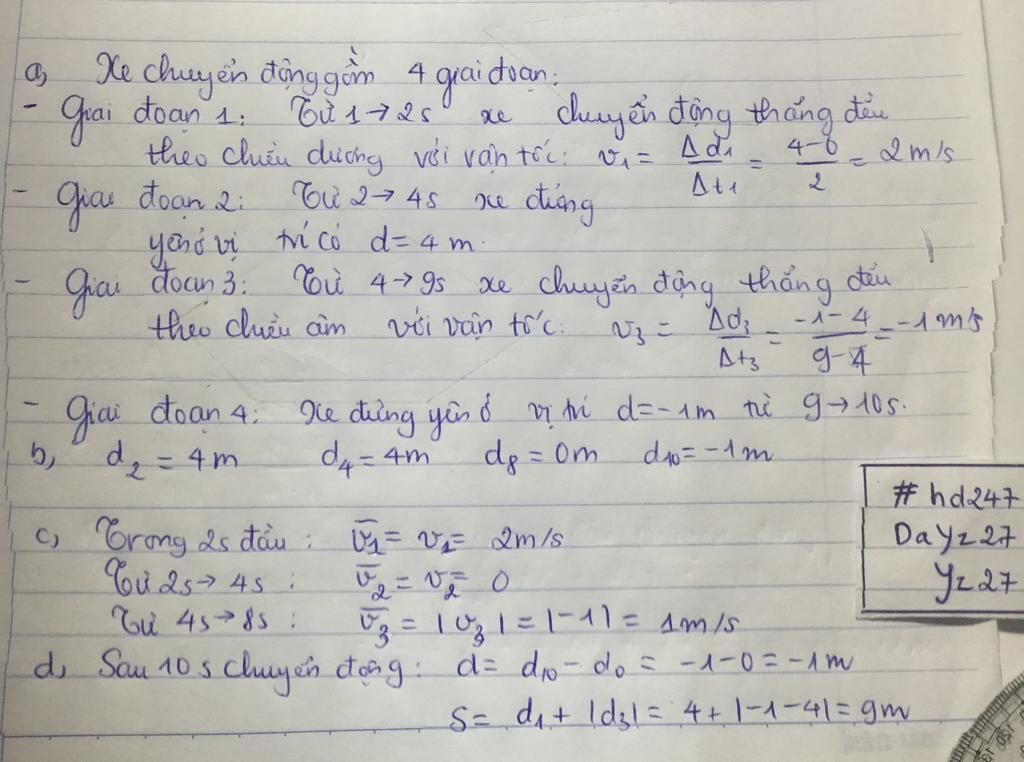 a, Xe chuyển động gồm 4 giai đoạn:
- Giai đoạn 1: Từ 1→2s xe chuyển động thẳng đều
theo chiều dương với vận tốc: v₁ = Δd₁/Δt₁ = (4-0)/2 = 2 m/s
- Giai đoạn 2: Từ 2→4s xe đứng
yên ở vị trí có d = 4 m.
- Giai đoạn 3: Từ 4→9s xe chuyển động thẳng đều
theo chiều âm với vận tốc: v₃ = Δd₃/Δt₃ = (-1-4)/(9-4) = -1 m/s
- Giai đoạn 4: Xe đứng yên ở vị trí d=-1m từ 9→10s.
b, d₂ = 4m d₄ = 4m d₈ = 0m d₁₀ = -1m
c, Trong 2s đầu: v̅₁ = v₁ = 2m/s
Từ 2s→4s: v̅₂ = v₂ = 0
Từ 4s→8s: v̅₃ = |v₃| = |-1| = 1m/s
d, Sau 10s chuyển động: d = d₁₀ - d₀ = -1-0 = -1m
s = d₁ + |d₃| = 4 + |-1-4| = 9m
#hd247
DaYz27
Yz27